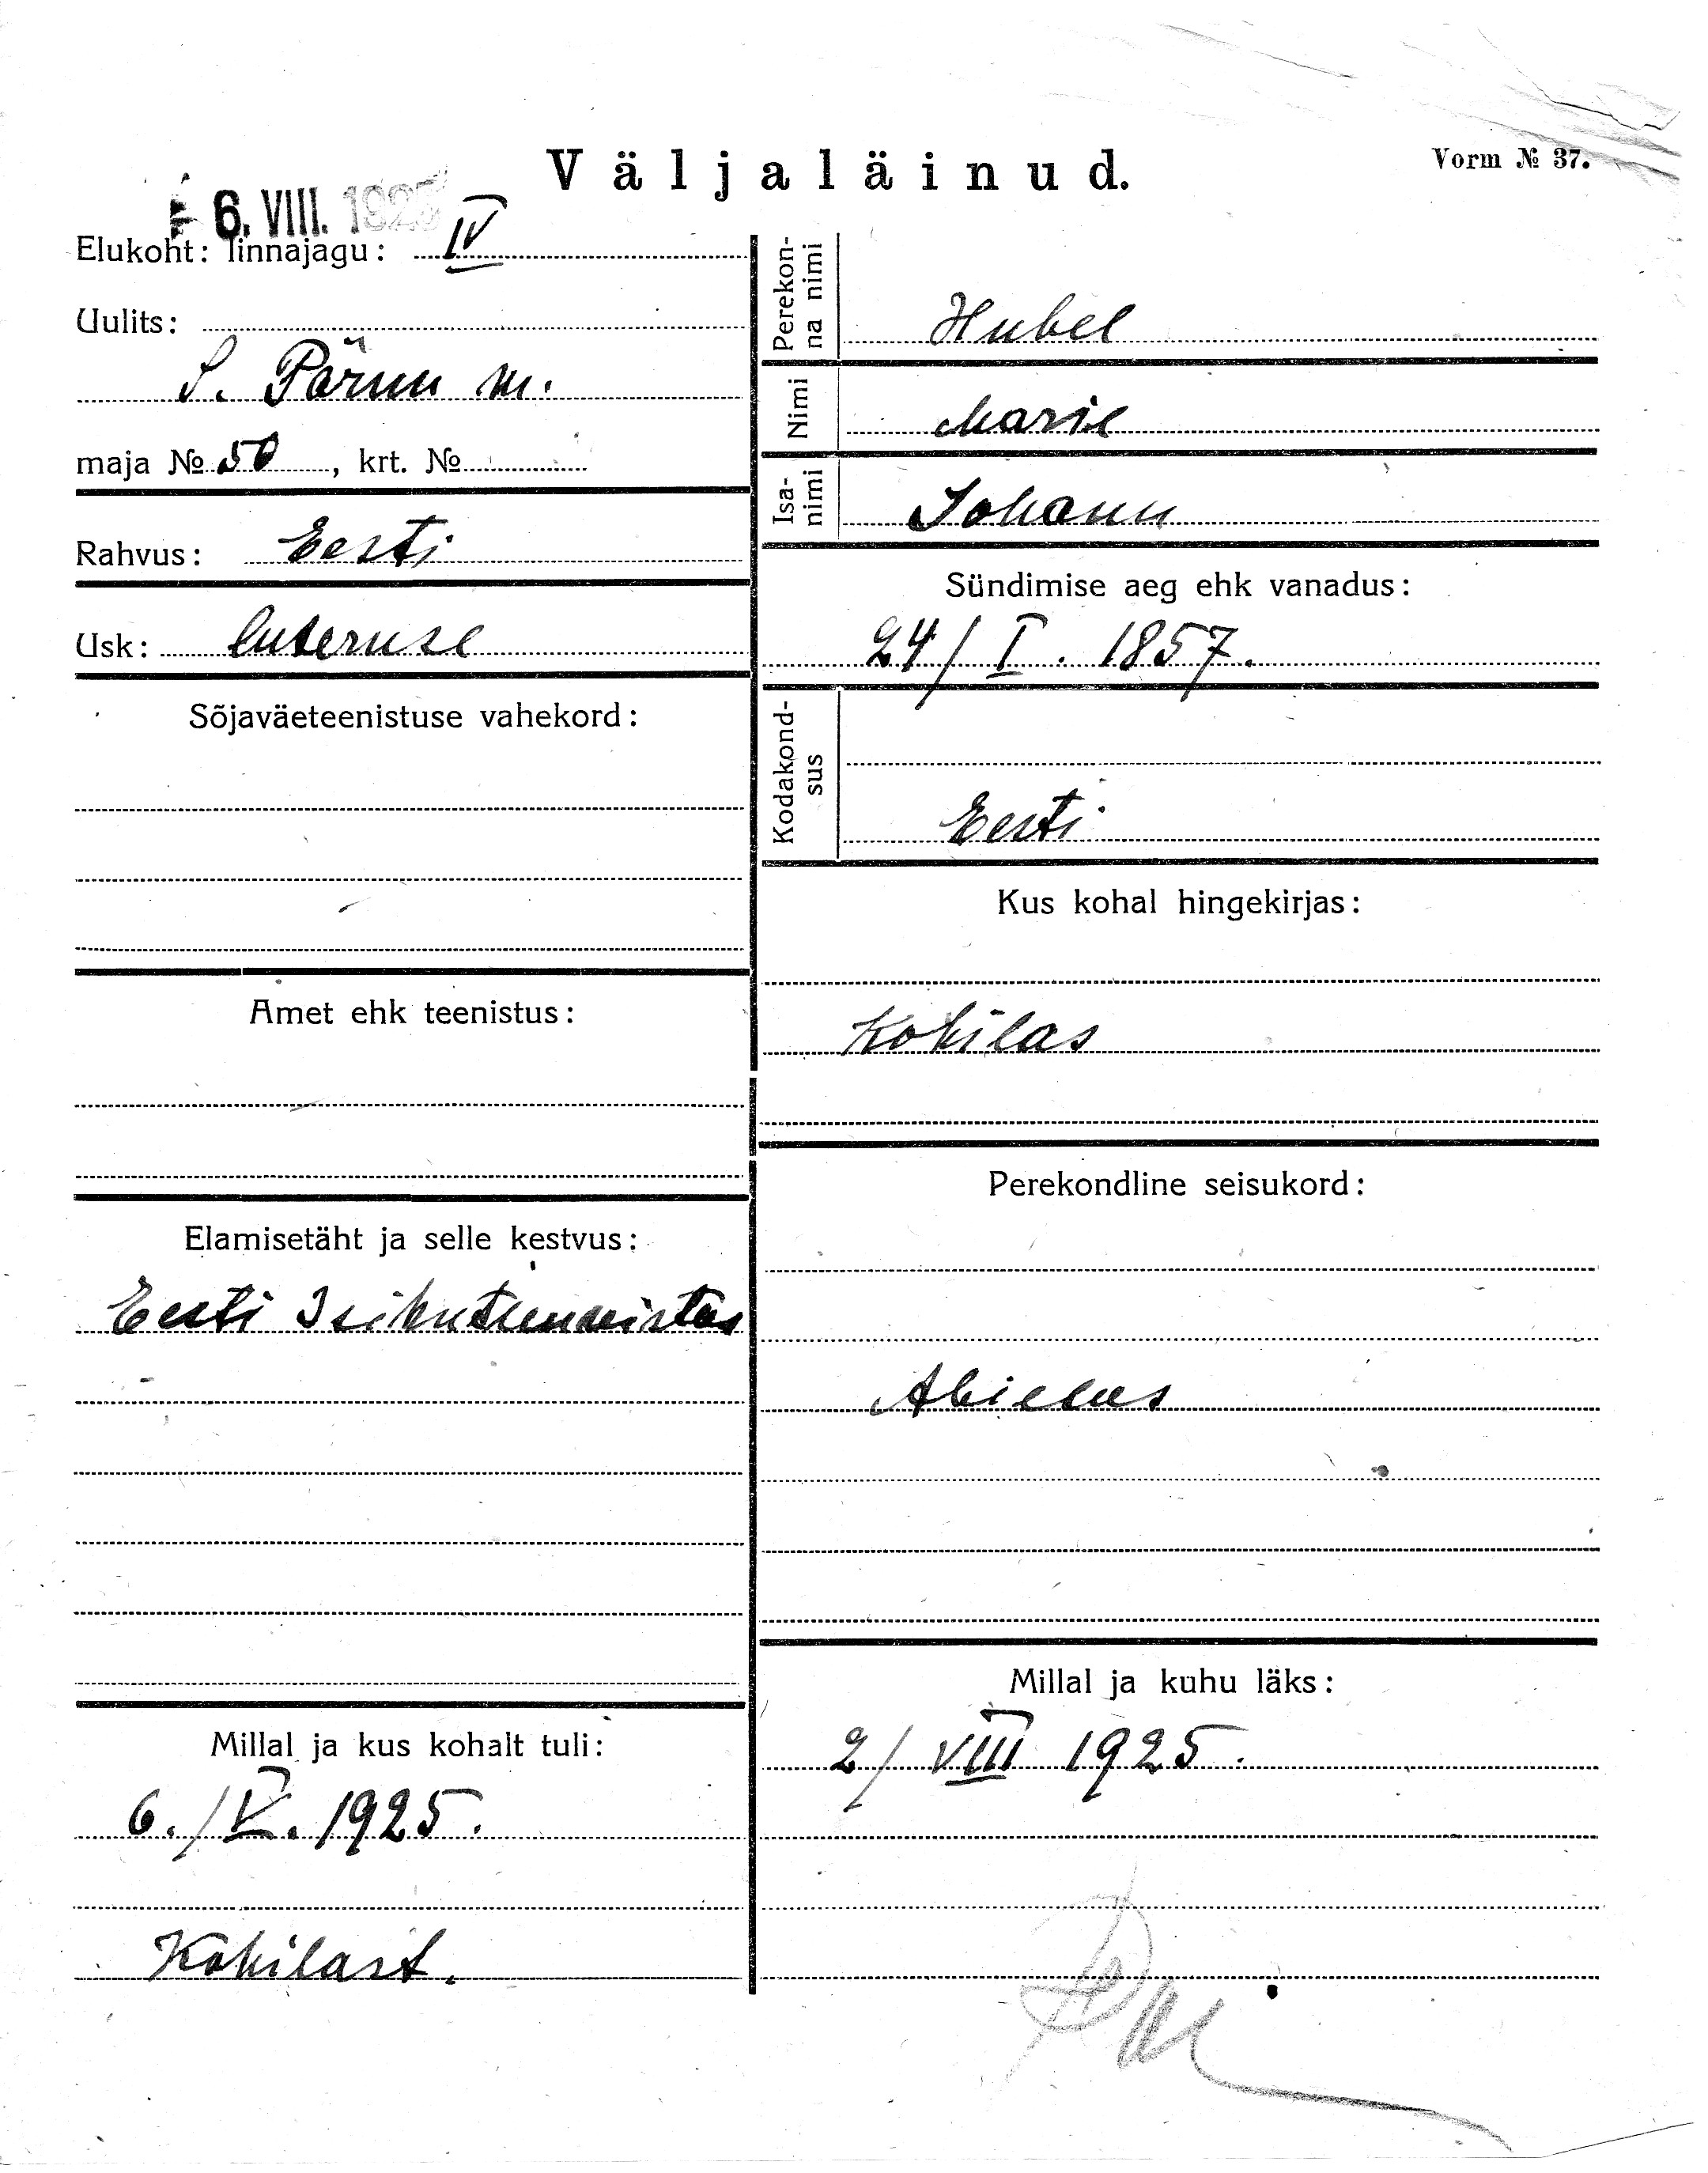 Väljaläinud.
Vorm № 37.
6. VIII. 1925
Elukoht: linnajagu: IV
Uulits:
S. Pärnu m.
maja № 50, krt. №
Rahvus: Eesti
Usk: luteruse
Sõjaväeteenistuse vahekord:
Amet ehk teenistus:
Elamisetäht ja selle kestvus:
Eesti Isikutunnistus
Millal ja kus kohalt tuli:
6./V. 1925.
Kohilast.
Perekon-
na nimi
Hubel
Nimi
Marie
Isa-
nimi
Johann
Sündimise aeg ehk vanadus:
24/I. 1857.
Kodakond-
sus
Eesti
Kus kohal hingekirjas:
Kohilas
Perekondline seisukord:
Abielus
Millal ja kuhu läks:
2/VIII 1925.